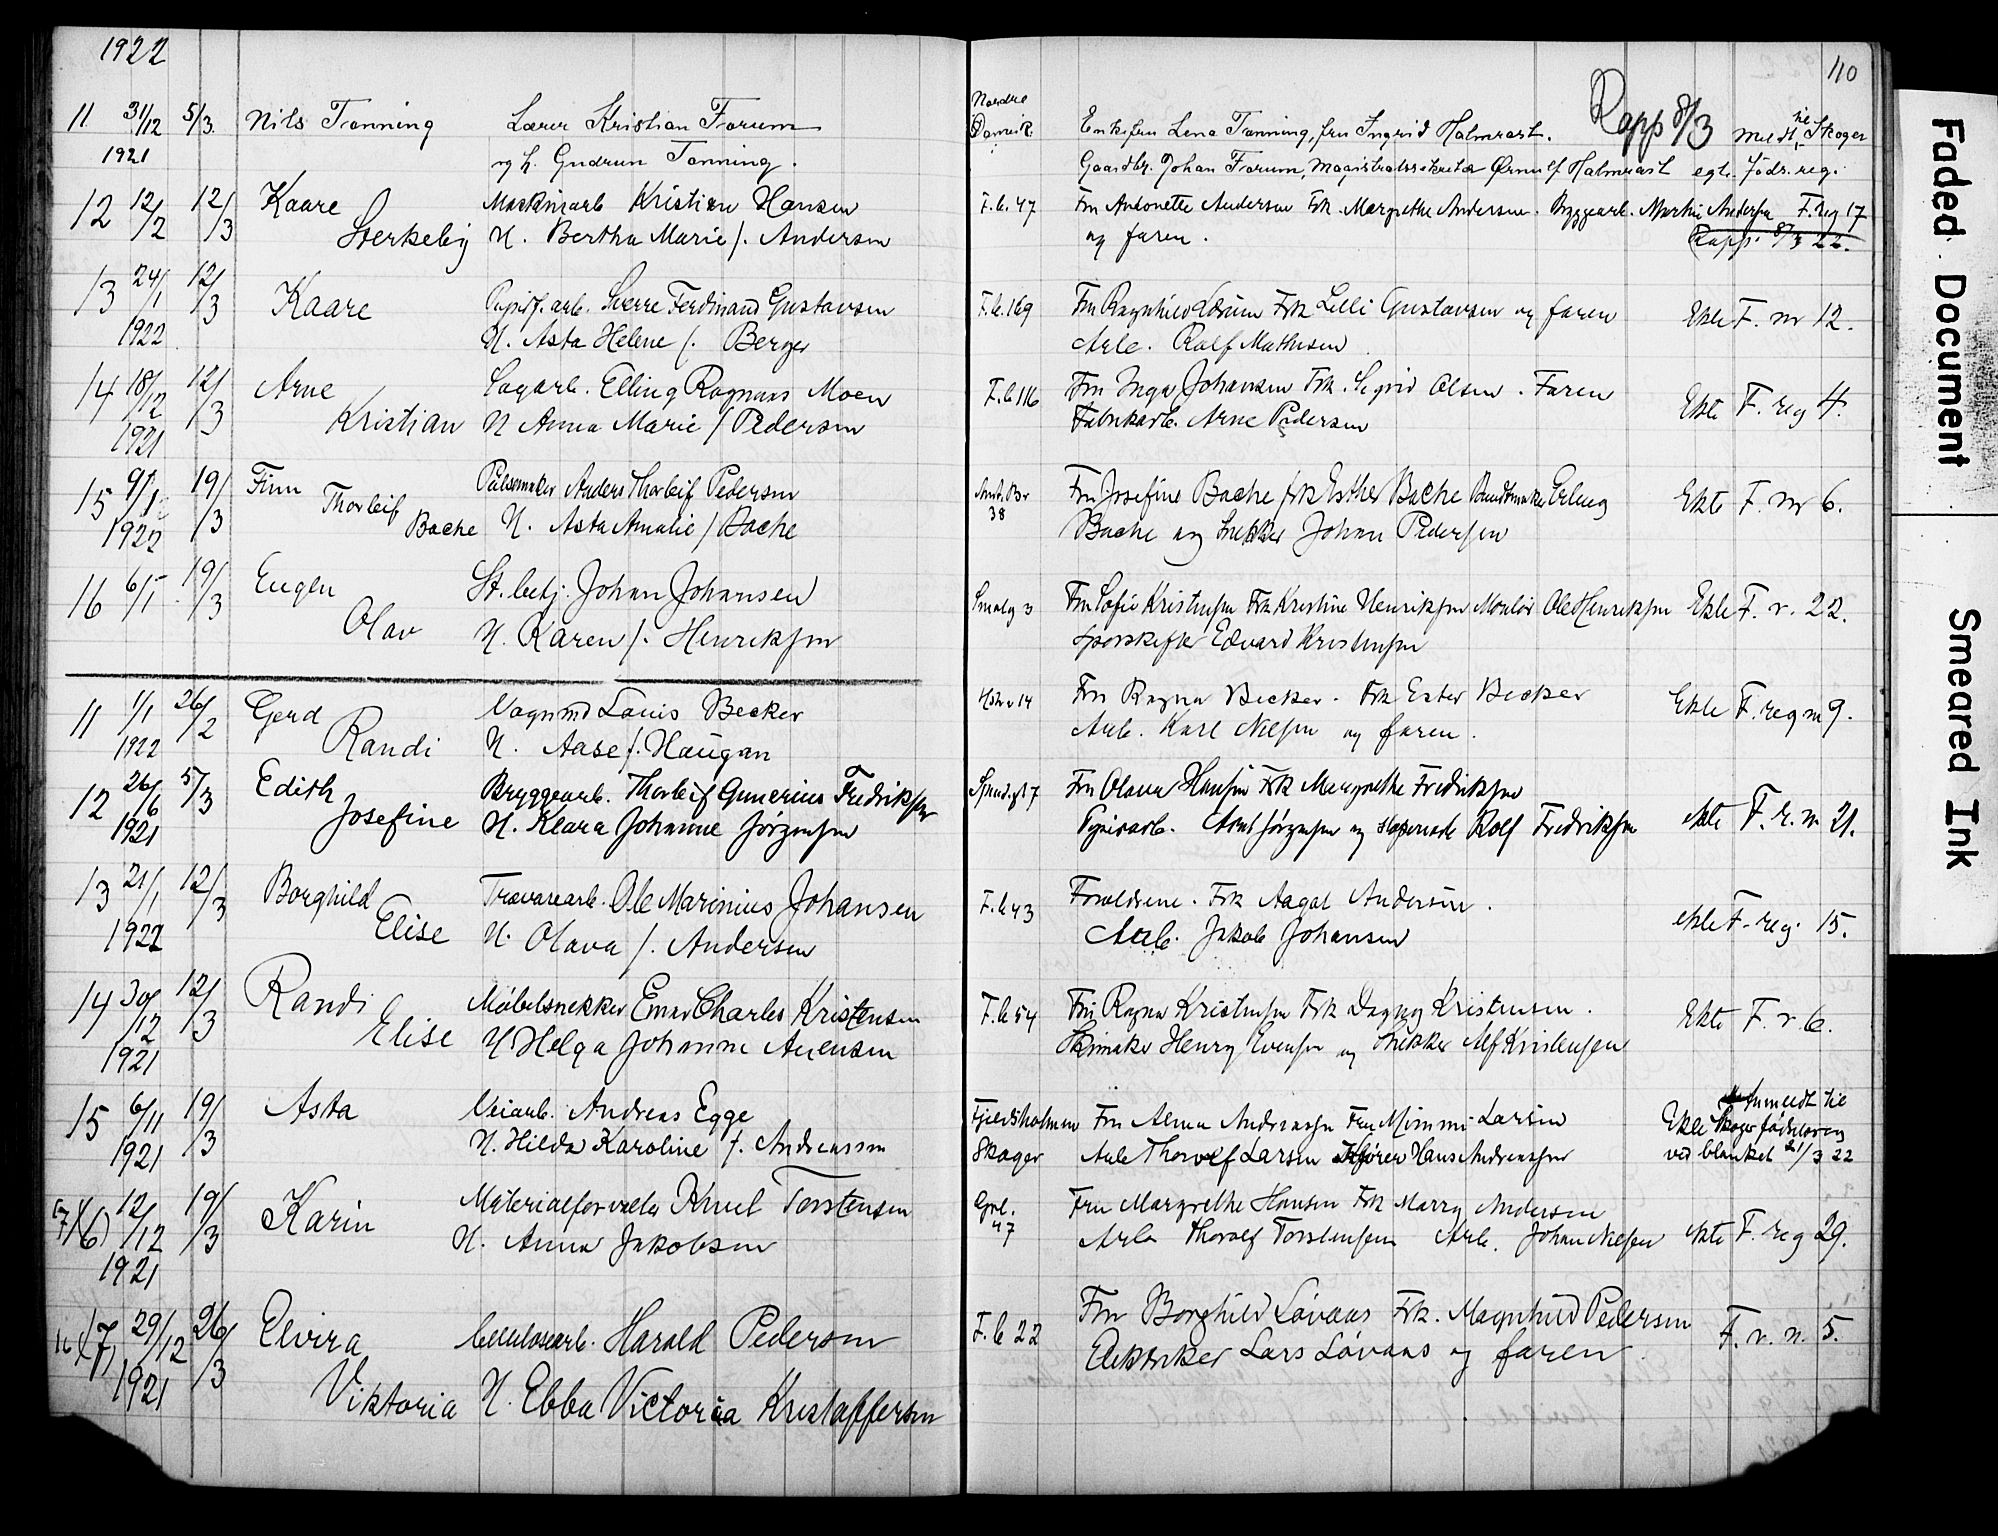 1922
110
11. 31/12 5/3. Nils Tonning Lærer Kristian Forum Nordre Enkefru Lena Tonning, fru Ingrid Halmrast. Rapp 8/3 Meldt til Skoger
1921 og h. Gudrun Tonning. Gaardbr. Johan Forum, Magistratssekretær Ørnulf Halmrast egte.føds.reg.
12 12/2 12/3 Kaare Maskinarb Kristian Hansen F.b. 47 Fru Antonette Andersen Frk. Margrethe Andersen. Byggearb. Martin Andersen F.reg 17
Sterkeby H. Bertha Marie f. Andersen og faren. Rapp. 8/3 22.
13 24/1 12/3 Kaare Papirf. arb. Sverre Ferdinand Gustavsen F.b. 169 Fru Ragnhild Frk Lilli Gustavsen og faren Ekte F. nr 12.
1922 H. Asta Helene f. Berger Arb. Rolf Mathisen
14 18/12 12/3 Arne Sagarb. Elling Ragnar Moen F.b 116 Fru Inga Johansen Frk. Sigrid Olsen. Faren Ekte F. reg 4.
1921 Kristian H Anna Marie f Pedersen Fabrikarb. Arne Pedersen
15 9/1 19/3 Finn Pølsemaker Anders Thorleif Pedersen Amt. Br Fru Josefine Bache frk Esther Bache Buntmaker Erling Ekte F. nr 6.
1922 Thorleif Bache H. Asta Amalie f Bache 38 Bache og Snekker Johan Pedersen
16 6/1 19/3 Eugen St. betj. Johan Johansen Smalg 3 Fru Sofie Kristensen Frk Kristine Henriksen Montør Ole Henriksen Ekte F. r. 22.
Olav H. Karen f. Henriksen Sporskifter Edvard Kristensen
11 1/1 26/2 Gerd Vognmd Louis Becker 14 Fru Ragna Becker. Frk Ester Becker Ekte F. reg nr 9.
1922 Randi H. Aase f. Haugan Arb. Karl Nilsen og faren.
12 26/6 5/3 Edith Bryggearb. Thorleif Gunerius Fredriksen 7 Fru Olava Hansen Frk Margrethe Fredriksen
1921 Josefine H. Klara Johanne Jørgensen Papirarb. Arnt Jørgensen og Rolf Fredriksen ekte F. r. nr 21.
13 21/1 12/3 Borghild Trævarearb. Ole Marinius Johansen F.b 43 Forældrene. Frk Aagot Andersen.
1922 Elise H. Olava f. Andersen Arb. Jakob Johansen ekte F. reg. 15.
14 30/12 12/3 Randi Møbelsnekker Einar Charles Kristensen F.b 54 Fru Ragna Kristensen Frk Dagny Kristensen. Ekte F. r 6.
1921 Elise H Helga Johanne Evensen Skimaker Henry Evensen og Snekker Alf Kristensen
15 6/11 19/3 Asta Veiarb. Andreas Egge Fjeldsholmen Fru Alma Andreassen Fru Mimmi Larsen Ekte anmeldt til Skoger fødselsreg
1921 H. Hilda Karoline f. Andreassen Skoger Arb Thorolf Larsen Hans Andreassen ved blanket 21/3 22
(16) 12/12 19/3 Karin Materialforvalter Knut Torstensen Gml. 47 Fru Margrethe Hansen Frk Marry Andersen
1921 H. Anna Jakobsen Arb Thorolf Torstensen Arb. Johan Nielsen ekte F. reg 29.
16 (17) 29/12 26/3 Elvira Cellulosearb. Harald Pedersen F.b 22 Fru Borghild Løvaas Frk. Magnhild Pedersen F. r. n. 5.
1921 Viktoria H. Ebba Victoria Kristoffersen Elektriker Lars Løvaas og faren.
Faded Document
Smeared Ink